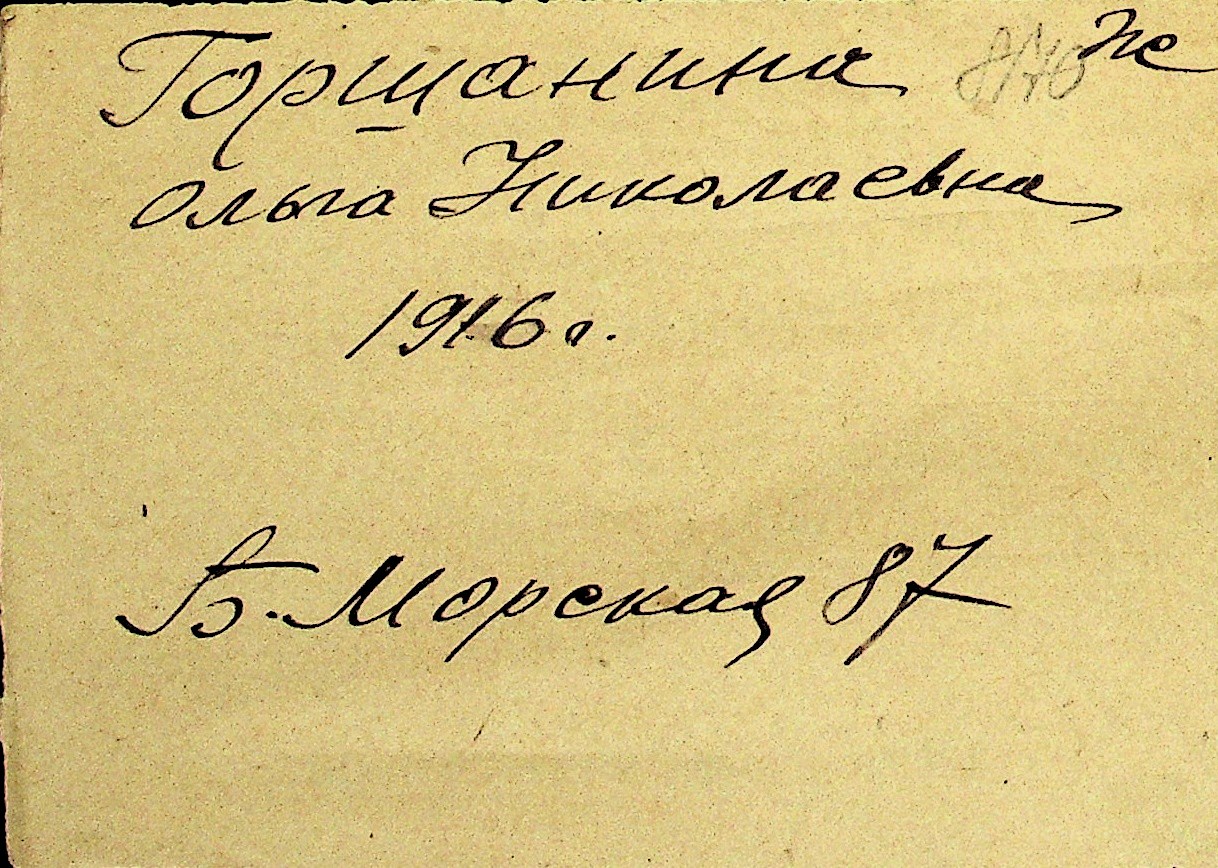 Горшанина же
Ольга Николаевна
1916 г.
Б. Морская 87